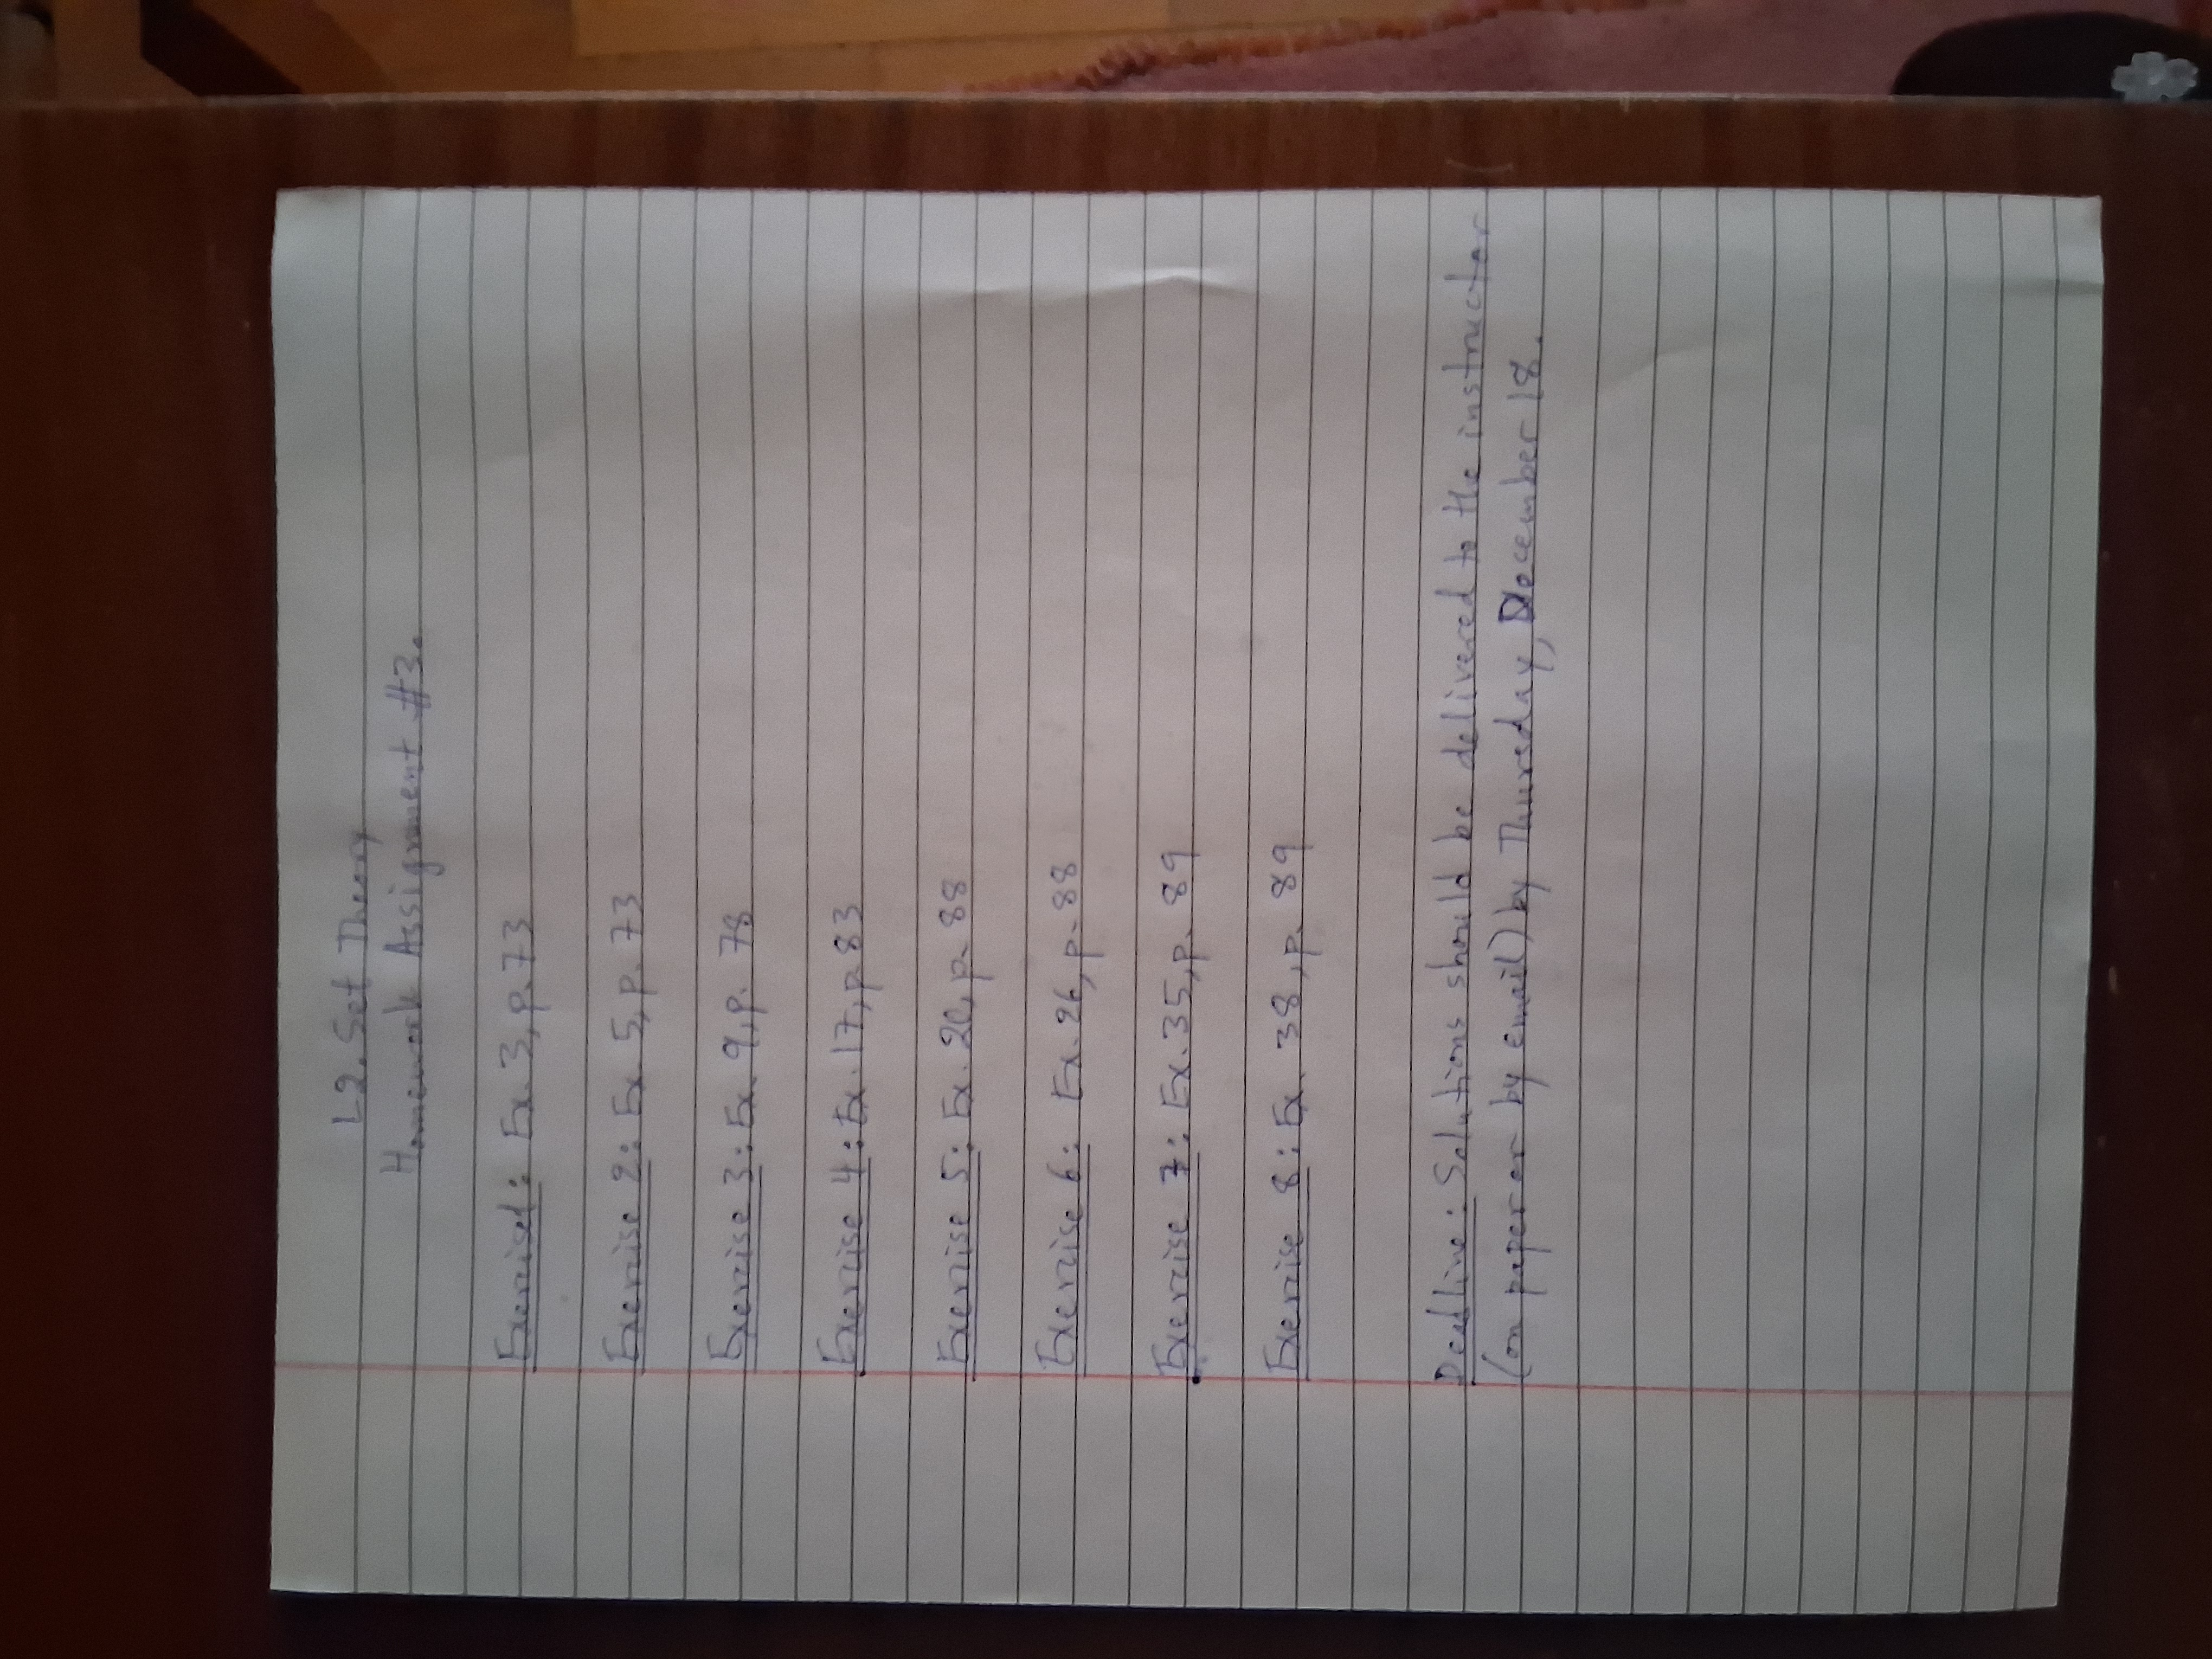 L2. Set Theory
Homework Assignment #3.
Exercise1: Ex. 3, p. 73
Exercise 2: Ex 5, p. 73
Exercise 3: Ex. 9, p. 78
Exercise 4: Ex. 17, p 83
Exercise 5: Ex. 20, p. 88
Exercise 6: Ex. 26, p. 88
Exercise 7: Ex. 35, p. 89
Exercise 8: Ex. 38, p. 89
Deadline: Solutions should be delivered to the instructor
(on paper or by email) by Thursday, December 18.